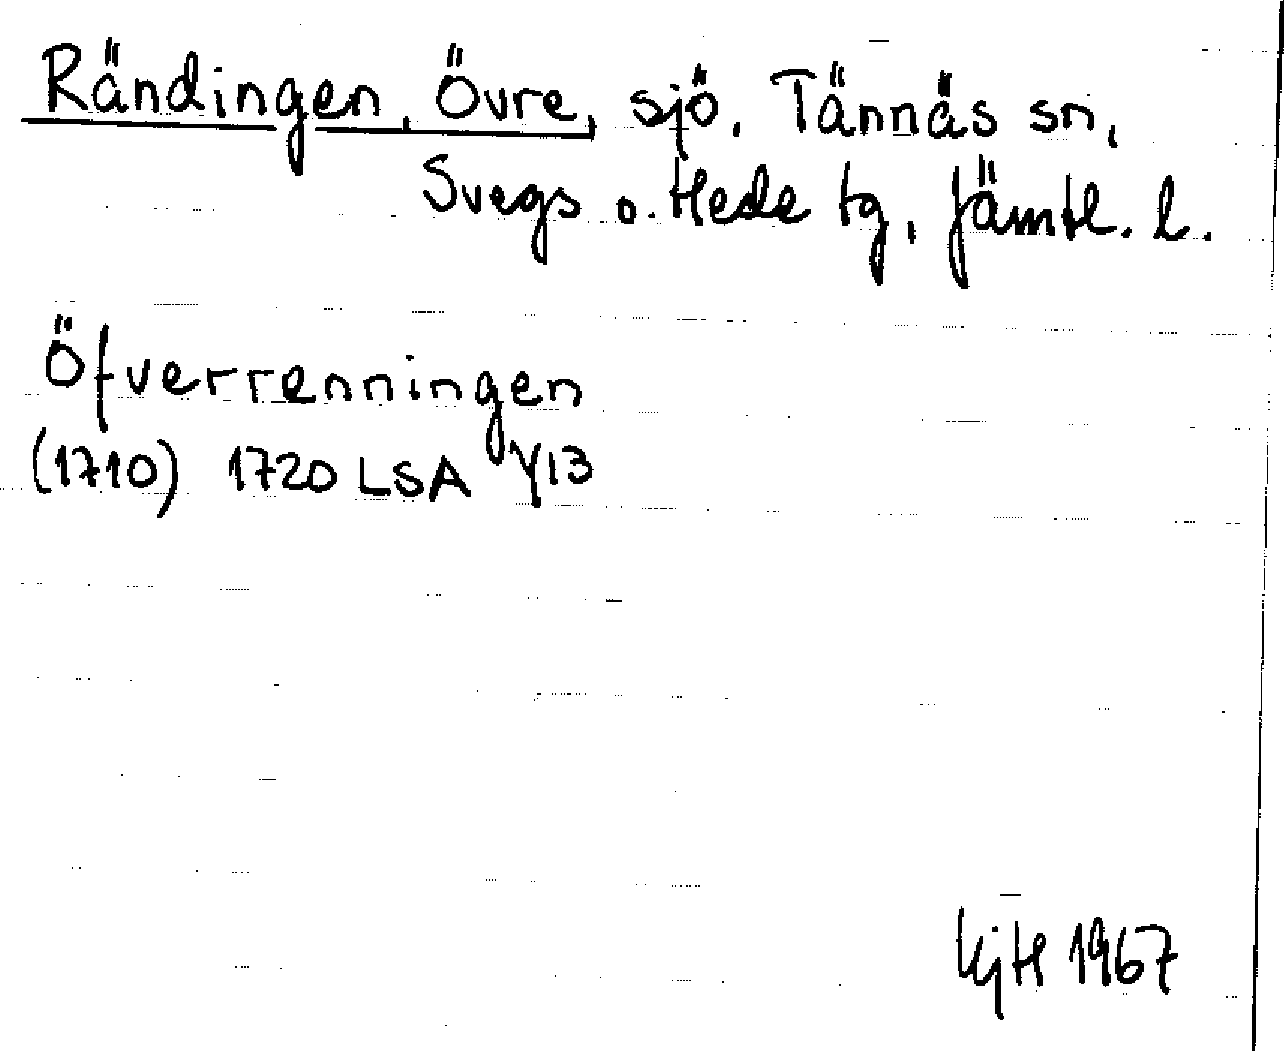 Rändingen, Övre, sjö, Tännäs sn,
Svegs o. Hede tg, Jämtl. l.
Öfverrenningen
(1710) 1720 LSA Y13
KjH 1967